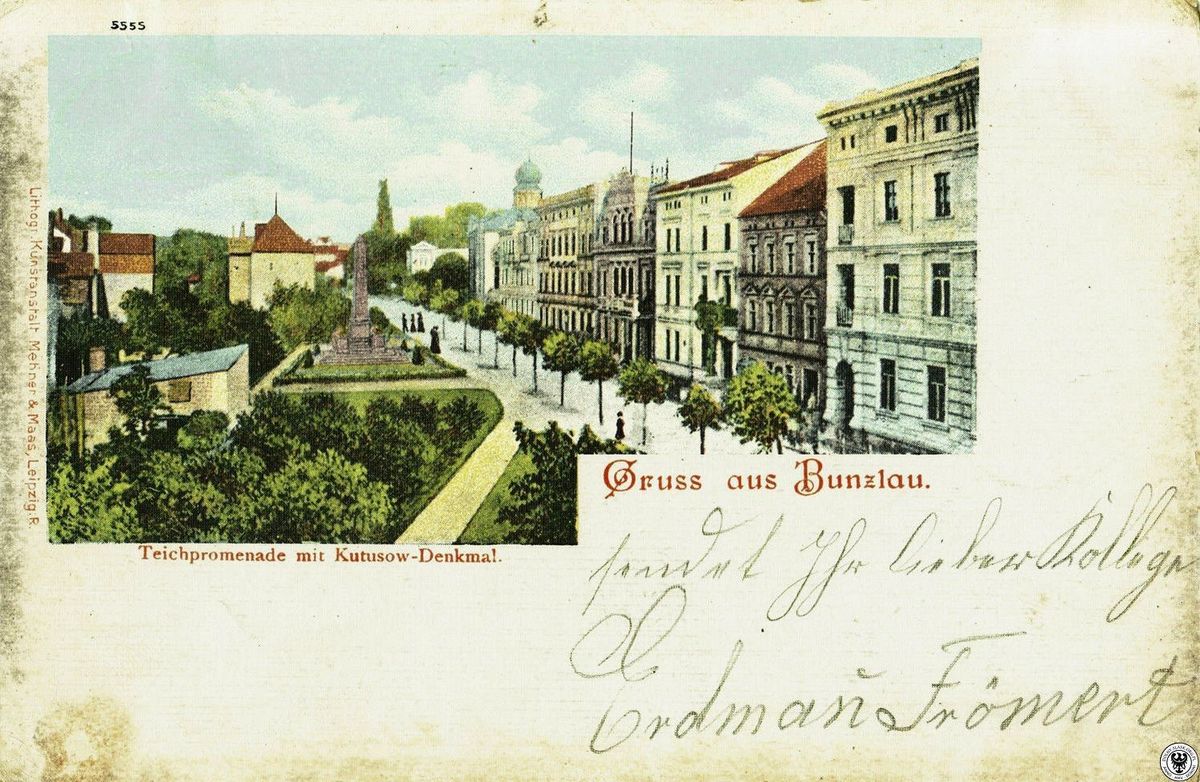 5555
Lithogr. Kunstanstalt Mehner & Maas, Leipzig-R.
Gruss aus Bunzlau.
Teichpromenade mit Kutusow-Denkmal.
sendet Ihr lieber Kollege
Erdmañ Frömert